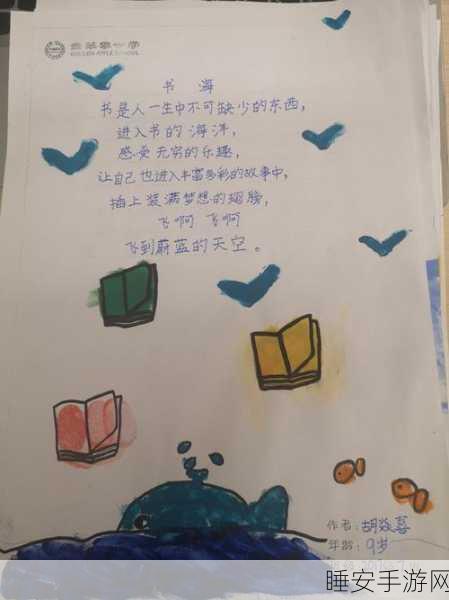 金苹果公学
GOLDEN APPLE SCHOOL
书 海
书是人一生中不可缺少的东西，
进入书的海洋，
感受无穷的乐趣，
让自己也进入丰富多彩的故事中，
插上装满梦想的翅膀，
飞啊 飞啊
飞到蔚蓝的天空。
作者：胡
年龄：9岁
睡安手游网